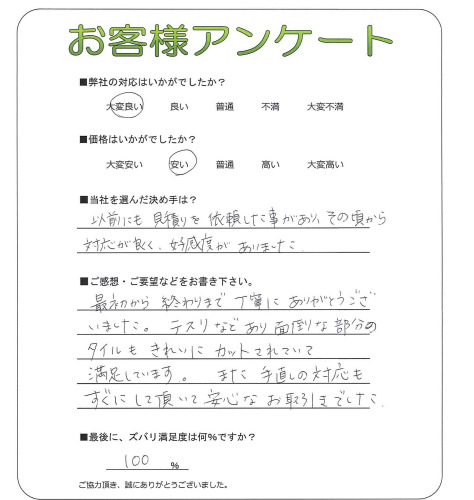 お客様アンケート
■弊社の対応はいかがでしたか？
大変良い 良い 普通 不満 大変不満
■価格はいかがでしたか？
大変安い 安い 普通 高い 大変高い
■当社を選んだ決め手は？
以前にも見積りを依頼した事があり、その頃から
対応が良く、好感度がありました。
■ご感想・ご要望などをお書き下さい。
最初から終わりまで丁寧にありがとうござ
いました。テスリなどあり面倒な部分の
タイルもきれいにカットされていて
満足しています。また手直しの対応も
すぐにして頂いて安心なお取引きでした。
■最後に、ズバリ満足度は何%ですか？
100 %
ご協力頂き、誠にありがとうございました。